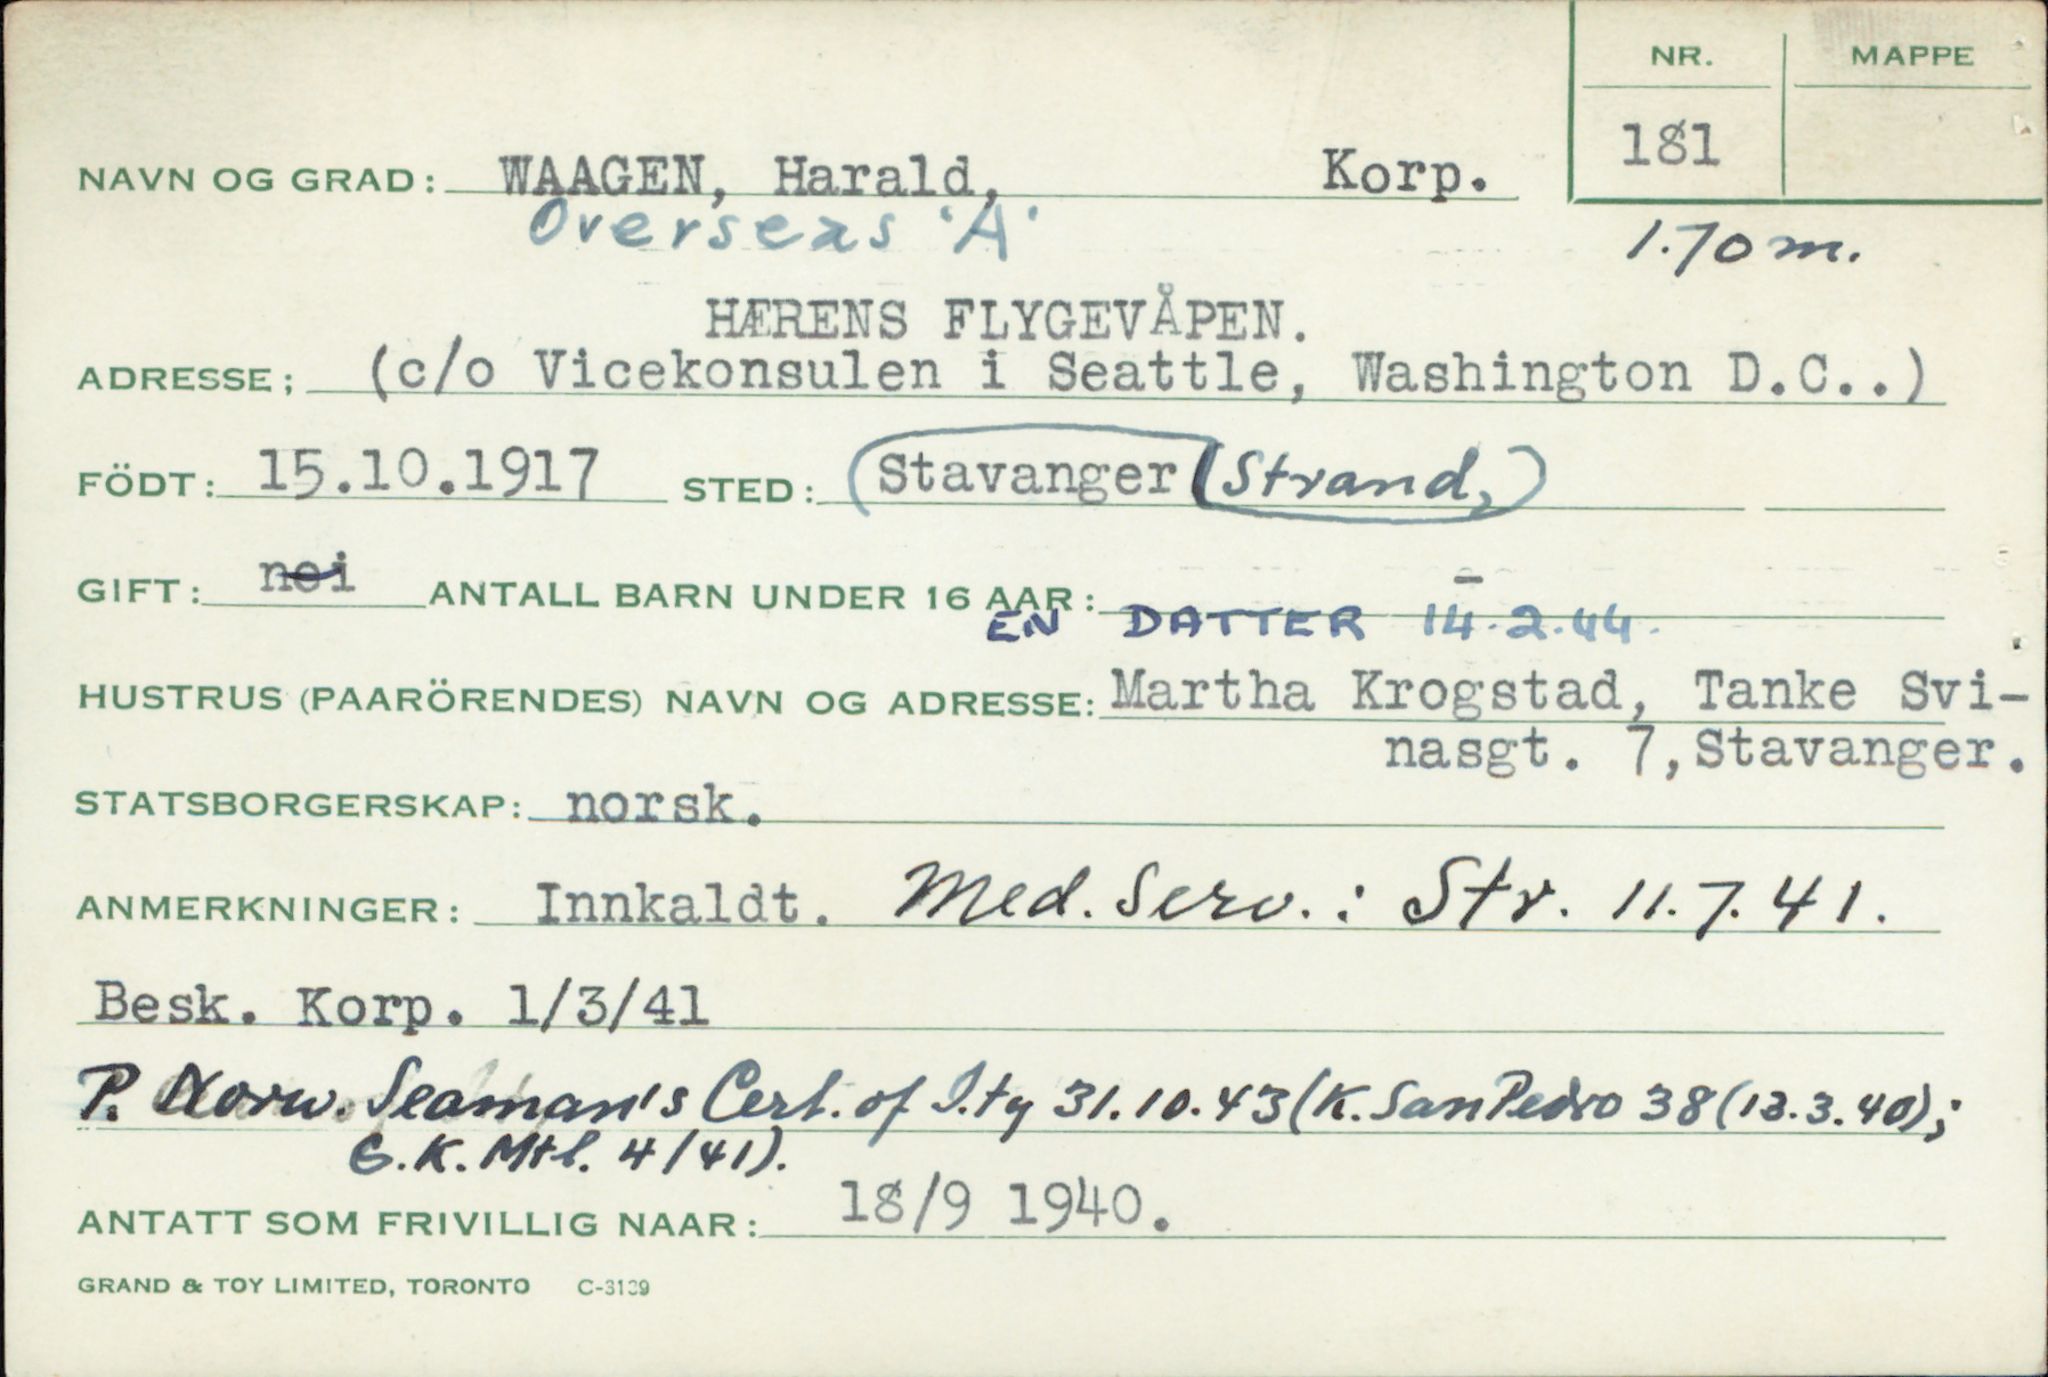 NR. MAPPE
181
NAVN OG GRAD: WAAGEN, Harald, Korp.
Overseas 'A'
1.70 m.
HÆRENS FLYGEVÅPEN.
ADRESSE; (c/o Vicekonsulen i Seattle, Washington D.C..)
FÖDT: 15.10.1917 STED: Stavanger (Strand,)
GIFT: nei ANTALL BARN UNDER 16 AAR: -
EN DATTER 14.2.44.
HUSTRUS (PAARÖRENDES) NAVN OG ADRESSE: Martha Krogstad, Tanke Svi-
nasgt. 7, Stavanger.
STATSBORGERSKAP: norsk.
ANMERKNINGER: Innkaldt. Med. Serv.: Str. 11.7.41.
Besk. Korp. 1/3/41
P. Norw. Seaman's Cert. of I.ty 31.10.43 (K. San Pedro 38 (13.3.40);
G.K. Mtl. 4/41).
ANTATT SOM FRIVILLIG NAAR: 18/9 1940.
GRAND & TOY LIMITED, TORONTO C-3139